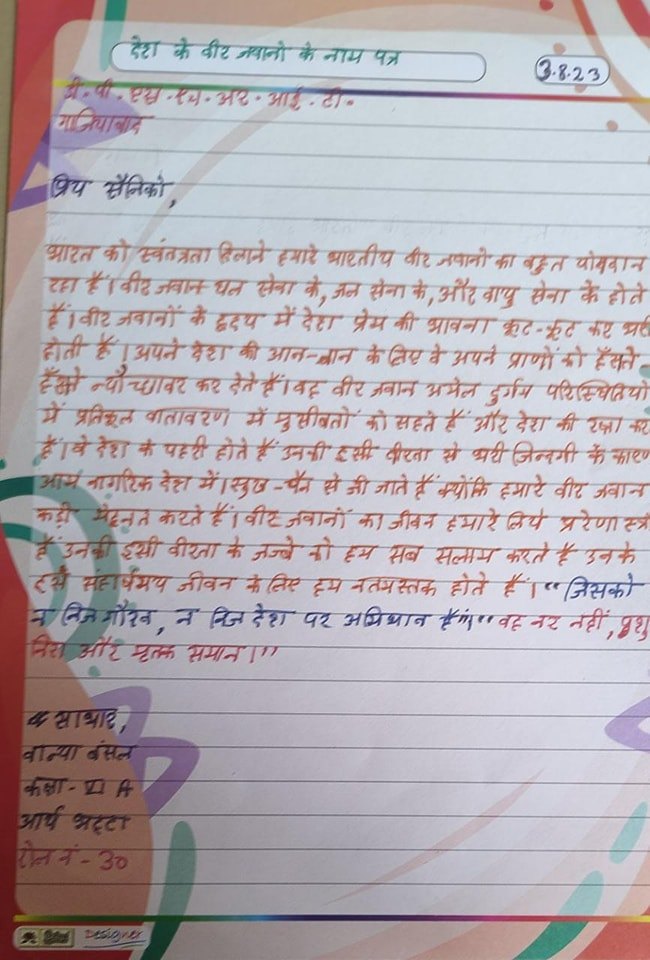 देश के वीर जवानो के नाम पत्र
3.8.23
डी.पी.एस.एच.आर.आई.टी.
गाजियाबाद
प्रिय सैनिको,
भारत को स्वतंत्रता दिलाने हमारे भारतीय वीर जवानो का बहुत योगदान
रहा हैं। वीर जवान थल सेना के, जल सेना के, और वायु सेना के होते
हैं। वीर जवानों के ह्रदय में देश प्रेम की भावना कूट-कूट कर भरी
होती हैं। अपने देश की आन-बान के लिए वे अपने प्राणों को हँसते
हँसते न्यौच्छावर कर देते हैं। वह वीर जवान अनेक दुर्गम परिस्थितियो
में प्रतिकूल वातावरण में मुसीबतों को सहते हैं और देश की रक्षा कर
हैं। वे देश के पहरी होते हैं उनकी इसी वीरता से भरी जिन्दगी के कारण
आम नागरिक देश में। सुख-चैन से जी जाते हैं क्योंकि हमारे वीर जवान
कड़ी मेहनत करते हैं। वीर जवानों का जीवन हमारे लिये प्ररेणा स्त्रो
हैं उनकी इसी वीरता के जज्बे को हम सब सलाम करते है उनके
संहार्षमय जीवन के लिए हम नतमस्तक होते हैं। "जिसको
न निज गौरव, न निज देश पर अभिमान हैं।" "वह नर नहीं, पशु
निरा और मृतक समान।"
साभार,
वान्या बंसल
कक्षा - VI A
आर्य भट्टा
रोल नं - 30
Designer